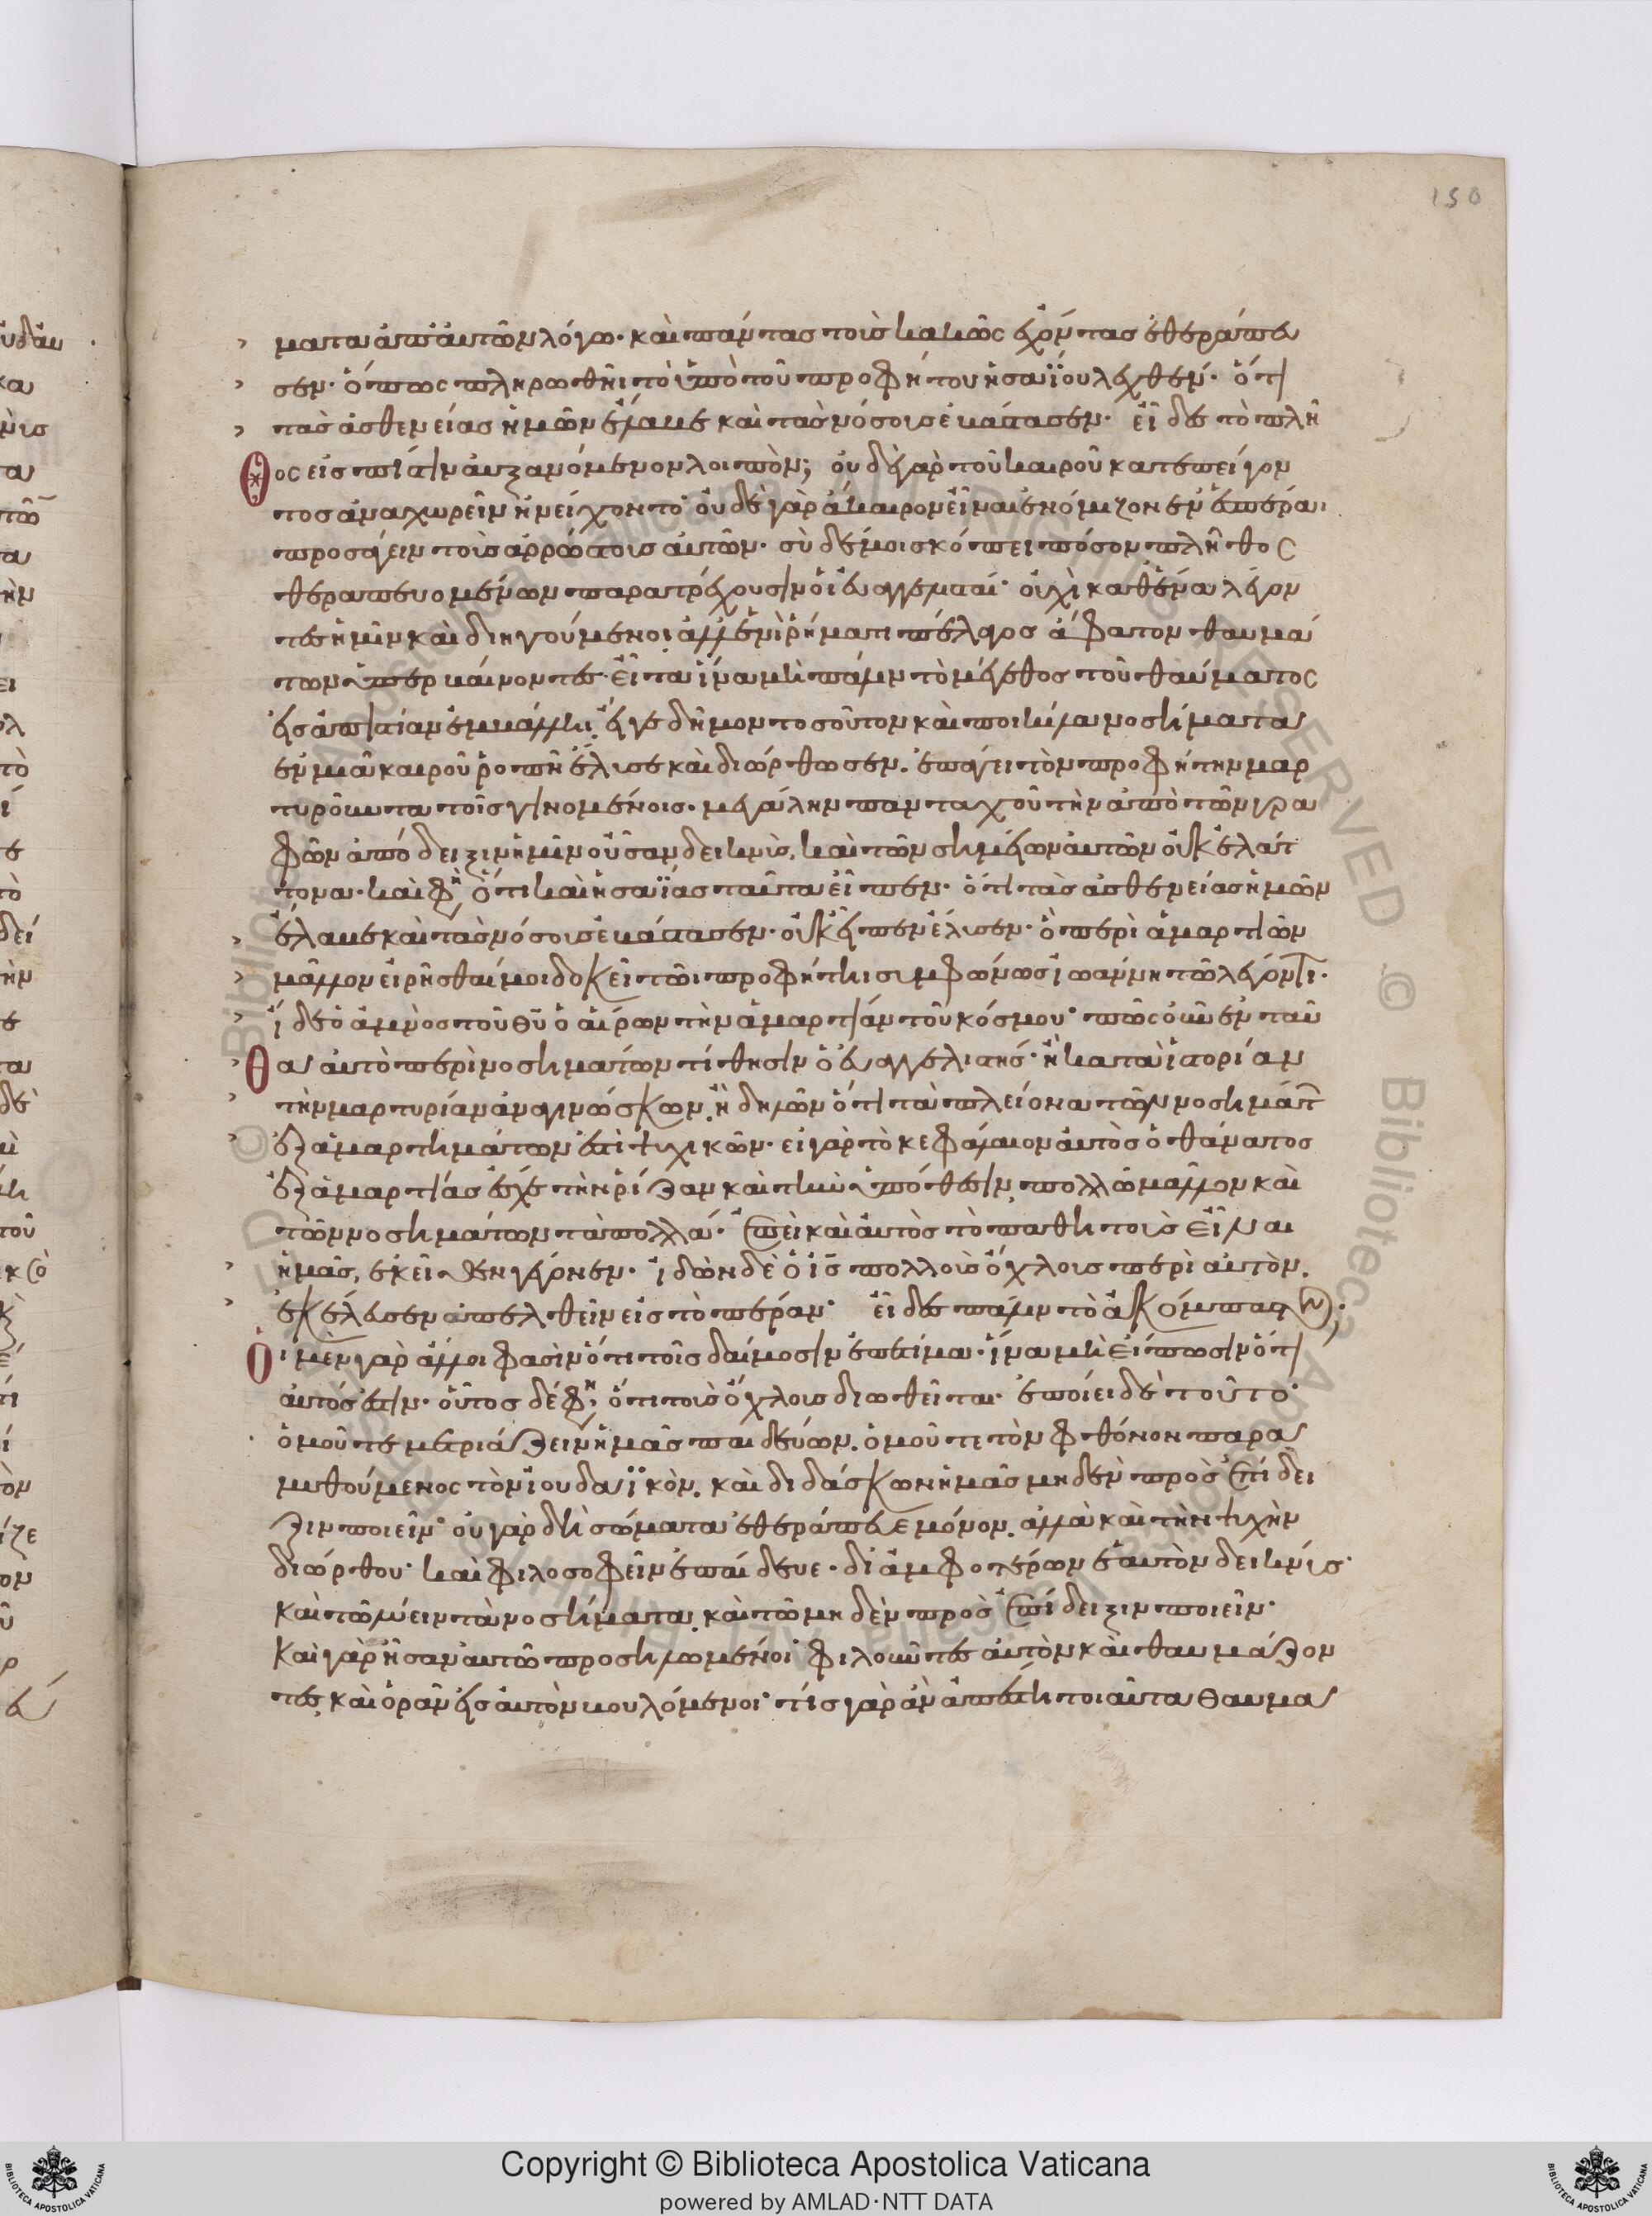 150
ματα ἀπ' αὐτῶν λόγω· καὶ πάντας τοὺς κακῶς ἔχοντας ἐθεράπευ
σεν· ὅπως πληρωθῆι τὸ ὑπὸ τοῦ προφήτου ἡσαΐου λεχθέν· ὅτι
τὰς ἀσθενείας ἡμῶν ἔλαβε καὶ τὰς νόσους ἐβάστασεν· εἶδες τὸ πλῆ
θος εἰς πίστιν αὐξανόμενον λοιπόν; οὐδὲ γὰρ τοῦ καιροῦ κατεπείγον
τος ἀναχωρεῖν ἠνείχοντο· οὐδὲ γὰρ ἄκαιρον εἶναι ἐνόμιζον ἐν ἑσπέραι
προσάγειν τοὺς ἀρρώστους αὐτῶν· σὺ δέ μοι σκόπει πόσον πλῆθος
θεραπευομένων παρατρέχουσιν οἱ εὐαγγελισταί· οὐχὶ καθ' ἕνα λέγον
τες ἡμῖν καὶ διηγούμενοι ἀλλ' ἑνὶ ῥήματι πέλαγος ἄφατον θαυμά
των ὑπερβαίνοντες· εἶτα ἵνα μὴ πάλιν τὸ μέγεθος τοῦ θαύματος
ἐς ἀπιστίαν ἐμβάλλη, εἴγε δῆμον τοσοῦτον καὶ ποικίλα νοσήματα
ἐν μιᾶ καιροῦ ῥοπῆ ἔλυσε καὶ διώρθωσεν. ἐπάγει τὸν προφήτην μαρ
τυρoῦντα τοῖς γινομένοις· μεγάλην πανταχοῦ τὴν ἀπὸ τῶν γρα
φῶν ἀπόδειξιν ἡμῖν οὖσαν δεικνὺς, καὶ τῶν σημείων αὐτῶν οὐκ ἐλάτ
τονα· καὶ φη ὅτι καὶ ἡσαΐας ταῦτα εἶπεν· ὅτι τὰς ἀσθενείας ἡμῶν
ἔλαβε καὶ τὰς νόσους ἐβάστασεν· οὐκ εἶπεν ἔλυσεν· ὃ περὶ ἁμαρτιῶν
μᾶλλον εἰρῆσθαί μοι δοκεῖ τῶι προφήτη συμφώνως ἰωάννη τῶ λέγοντι·
ἴδε ὁ ἀμνὸς τοῦ θυ ὁ αἴρων τὴν ἁμαρτίαν τοῦ κόσμου· πῶς οὖν ἐνταῦ
θα αὐτὸ περὶ νοσημάτων τίθησιν ὁ εὐαγγελιστής· ἢ κατὰ ἱστορίαν
τὴν μαρτυρίαν ἀναγινώσκων, ἢ δηλῶν ὅτι τὰ πλείονα τῶν νοσημάτ
ἐξ ἁμαρτημάτων ἐστὶ ψυχικῶν· εἰ γὰρ τὸ κεφάλαιον αὐτὸς ὁ θάνατος
ἐξ ἁμαρτίας ἔσχε τὴν ῥίζαν καὶ τὴν ὑπόθεσιν, πολλῶ μᾶλλον καὶ
τῶν νοσημάτων τὰ πολλά· ἐπεὶ καὶ αὐτὸς τὸ παθητοὺς εἶναι
ἡμᾶς, ἐκεῖθεν γέγονεν· ἰδὼν δὲ ὁ ις πολλοὺς ὄχλους περὶ αὐτὸν.
ἐκέλευσεν ἀπελθεῖν εἰς τὸ πέραν· εἶδες πάλιν τὸ ἀκόμπαστον;
οἱ μὲν γὰρ ἄλλοι φασὶν ὅτι τοῖς δαίμοσιν ἐπετίμα· ἵνα μὴ εἴπωσιν ὅτι
αὐτός ἐστιν· οὗτος δέ φη ὅτι τοὺς ὄχλους διωθεῖται· ἐποίει δὲ τοῦτο·
ὁμοῦ τε μετριάζειν ἡμᾶς παιδεύων. ὁμοῦ τε τὸν φθόνον παρα
μυθούμενος τὸν ἰουδαϊκὸν. καὶ διδάσκων ἡμᾶς μηδὲν πρὸς ἐπίδει
ξιν ποιεῖν· οὐ γὰρ δὴ σώματα ἐθεράπευε μόνον, ἀλλὰ καὶ τὴν ψυχὴν
διώρθου· καὶ φιλοσοφεῖν ἐπαίδευε· δι' ἀμφοτέρων ἑαυτὸν δεικνύς·
καὶ τῶ λύειν τὰ νοσήματα, καὶ τῶ μηδὲν πρὸς ἐπίδειξιν ποιεῖν·
καὶ γὰρ ἦσαν αὐτῶ προσηλωμένοι φιλοῦντες αὐτὸν καὶ θαυμάζον
τες, καὶ ὁρᾶν εἰς αὐτὸν βουλόμενοι· τίς γὰρ ἂν ἀπέστη τοιαῦτα θαυμα
Copyright © Biblioteca Apostolica Vaticana
powered by AMLAD·NTT DATA